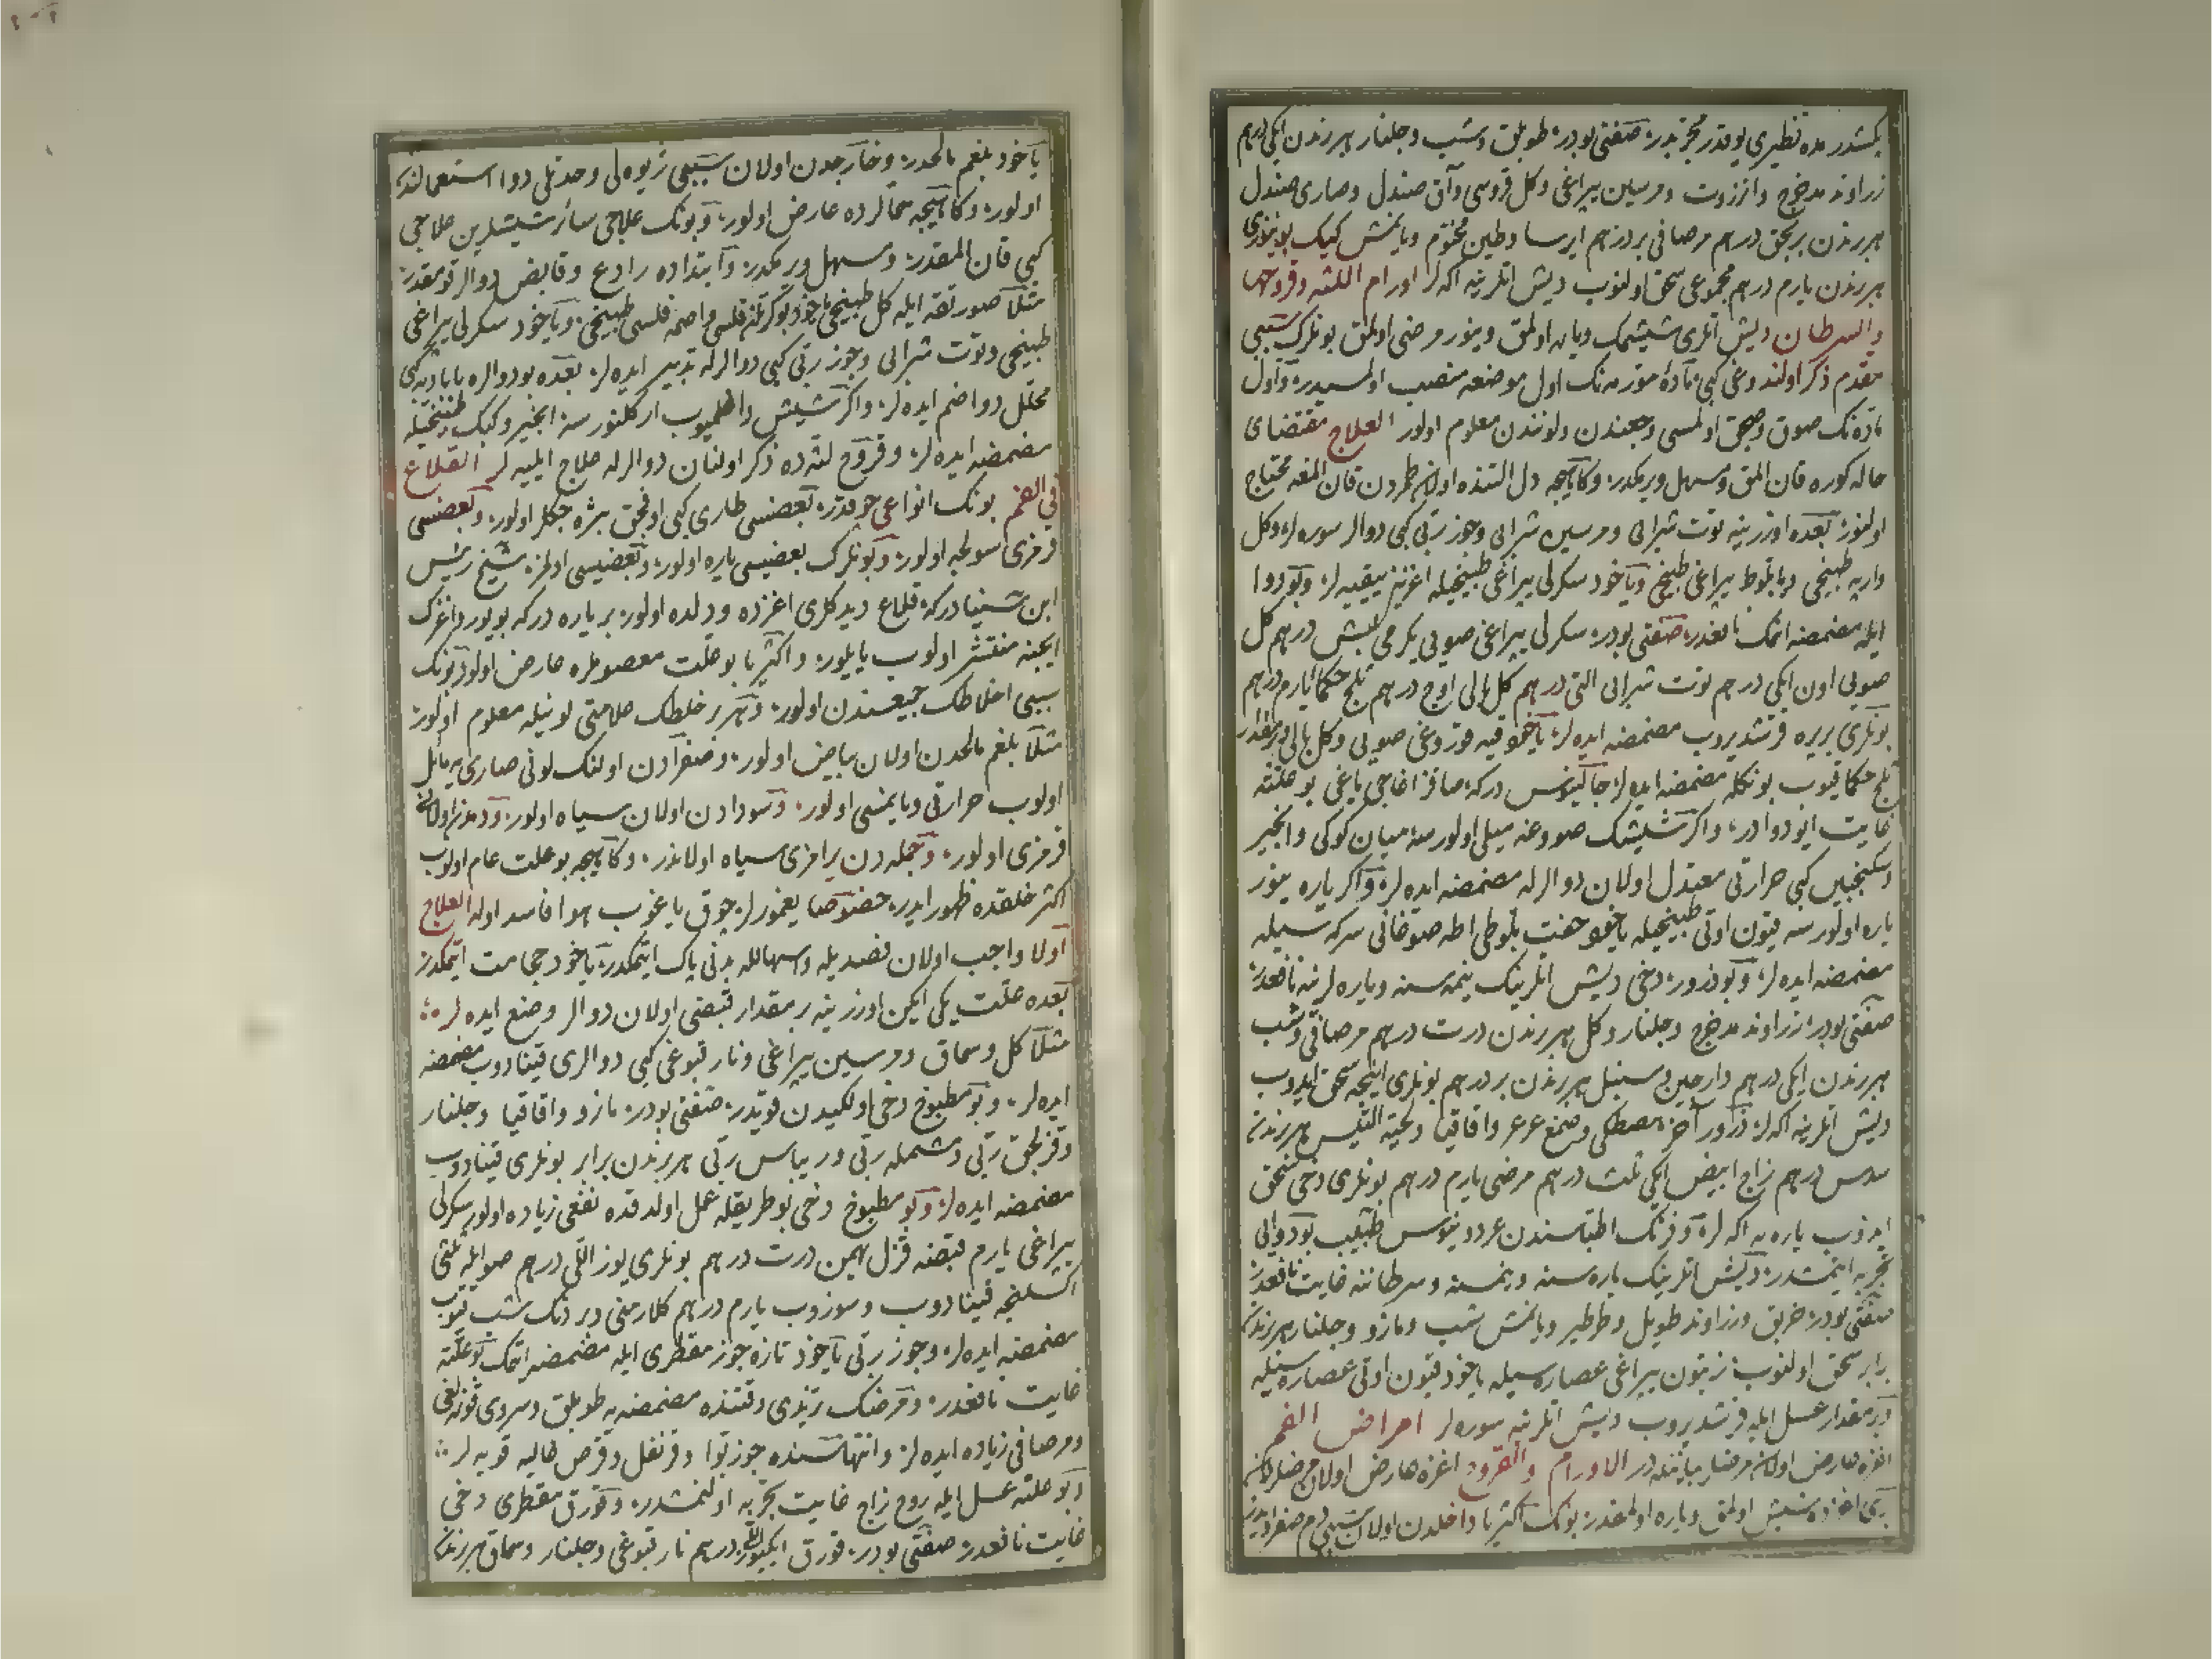 بكشدر مده نظيرى يوقدر مجربدر صفتى بودر طوبلق وشب وجلنار هر برندن ايكى درهم
زراوند مدحرج وانزروت ومرسين يپراغى وكل قروسى وآق صندل وصارى صندل
هر برندن بر بچق درهم مرصافى بر درهم ايرسا وطين مختوم ويانمش كيك بوينوزى
هر برندن يارم درهم مجموعى سحق اولنوب ديش اتلرينه اكه لر اورام اللثه وقروحها
والسرطان ديش اتلرى شيشمك ويا اولمق وينور مرضى اولمق بونلرك سببى
مقدم ذكر اولندوغى كبى مادۀ مورمه نك اول موضعه منصب اولمسيدر واول
ماده نك صوق وصجق اولمسى وجعندن ولونندن معلوم اولور العلاج مقتضاى
حاله كوره قان المق ومسهل ويرمكدر وكاهيجه دل التنده اولان طمردن قان المغه محتاج
اولنور بعده اوزرينه توت شرابى ومرسين شرابى وجوز ربى كبى دوالر سوره لر وكل
واربه طبيخى وبلوط يپراغى طبيخى وياخود سكرلى يپراغى طبيخيله اغزين ييقيه لر وبو دوا
ايله مضمضه اتمك نافعدر صفتى بودر سكرلى يپراغى صويى يكرمى بش درهم كل
صويى اون ايكى درهم توت شرابى التى درهم كل بالى اوچ درهم ملح حكما يارم درهم
بونلرى بربره قرشديروب مضمضه ايده لر ياخود قيه قوروغى صويى وكل بالى بر مقدار
ملح حكما قيوب بونكله مضمضه ايده لر جالينوس دركه صاقز اغاجى ياغى بو علته
غايت ايو دوادر واكر شيشك صووغه ميلى اولورسه ميان كوكى وانجير
وسكنجبين كبى حرارتى معتدل اولان دوالرله مضمضه ايده لر واكر ياره ينور
ياره اولورسه قيون اوتى طبيخيله ياخود جفت بلوطى اطه صوغانى سركه سيله
مضمضه ايده لر وبو ذرور دخى ديش اتلرينك ينمه سنه وياره لرينه نافعدر
صفتى بودر زراوند مدحرج وجلنار وكل هر برندن درت درهم مرصافى وشب
هر برندن ايكى درهم دارچين وسنبل هر برندن بر درهم بونلرى اينجه سحق ايدوب
ديش اتلرينه اكه لر ذرور آخر مصطكى وصمغ عرعر واقاقيا ولحية التيس هر برندن
سدس درهم زاج ابيض ايكى ثلث درهم مرضى يارم درهم بونلرى دخى سحق
ايدوب ياره يه اكه لر وفرنك اطباسندن طبيب بو دوايى
تجربه ايتمشدر ديش اتلرينك ياره سنه وينمسنه وسرطاننه غايت نافعدر
صفتى بودر خربق وزراوند طويل وطرطير ويانمش شب ومازو وجلنار هر برندن
برابر سحق اولنوب زيتون يپراغى عصاره سيله ياخود قيون اوتى عصاره سيله
وبر مقدار عسل ايله قرشديروب ديش اتلرينه سوره لر امراض الفم
اغزه عارض اولان مرضلر بياننده در الاورام والقروح اغزه عارض اولان مرضلردن
برى اغزده شيش اولمق وياره اولمقدر بونك اكثريا داخلدن اولان سببى دم صفراويدر
ياخود بلغم مالحدر وخارجدن اولان سببى زيوه لى وحدتلى دوا استعمالندن
اولور وكاهيجه حمالرده عارض اولور وبونك علاجى سائر شيشلرين علاجى
كبى قان المقدر ومسهل ويرمكدر وابتداده رادع وقابض دوالر قومقدر
مثلا صور تقه ايله كل طبيخى ياخود بوكرتلن قلسى واصمه فلسى طبيخى وياخود سكرلى يپراغى
طبيخى وتوت شرابى وجوز ربى كبى دوالرله تدبير ايده لر بعده بو دوالره بابادیه كبى
محلل دوا ضم ايده لر واكر شيش داغلميوب اركلنورسه انجير وكبك طبيخيله
مضمضه ايده لر وقروح لثه ده ذكر اولنان دوالرله علاج ايليه لر القلاع
فى الفم بونك انواعى چوقدر بعضسى طارى كبى اوفجق بثره جكلر اولور وبعضسى
قرمزى سولجه اولور وبونلرك بعضيسى ياره اولور وبعضيسى اولمز شيخ رئيس
ابن سينا دركه قلاع ديدكلرى اغزده ودلده اولور بر ياره دركه بويور واغزك
ايچنه منتشر اولوب يايلور واكثريا بو علت معصوملره عارض اولور بونك
سببى اخلاطك جميعسندن اولور وهر بر خلطك علامتى لونيله معلوم اولور
مثلا بلغم مالحدن اولان بياض اولور وصفرادن اولنك لونى صارى يه مائل
اولوب حرارتى ويانمسى اولور وسودادن اولان سياه اولور ودمدن اولان
قرمزى اولور وجمله دن يرامزى سياه اولاندر وكاهيجه بو علت عام اولوب
اكثر خلقده ظهور ايدر خصوصا يغمورلر چوق ياغوب هوا فاسد اوله العلاج
اولا واجب اولان فصديله واسهالله بدنى پاك ايتمكدر ياخود حجامت ايتمكدر
بعده علت يكى ايكن اوزرينه بر مقدار قبضى اولان دوالر وضع ايده لر
مثلا كل وسماق ومرسين يپراغى ونار قبوغى كبى دوالرى قينادوب مضمضه
ايده لر وبو مطبوخ دخى اولكيدن قوتلیدر صفتى بودر مازو واقاقيا وجلنار
وقزلجق ربى ومشمله ربى وريباس ربى هر برندن برابر بونلرى قينادوب
مضمضه ايده لر وبو مطبوخ دخى بو طريقله عمل اولدقده نفعى زياده اولور سكرلى
يپراغى يارم قبضه قزل بهمن درت درهم بونلرى يوز اللى درهم صو ايله ثلثى
اكسلنجه قينادوب وسوزوب يارم درهم كلارمنى ودر دنك شب قيوب
مضمضه ايده لر وجوز ربى ياخود تازه جوز مقطرى ايله مضمضه اتمك بو علته
غايت نافعدر ومرضك تزيدى وقتنده مضمضه يه طوبلق وسروى قوزلغى
ومرصافى زياده ايده لر وانتهاسنده جوزبوا وقرنفل وقرص غاليه قويه لر
وبو علته عسل ايله روح زاج غايت تجربه اولنمشدر وقورق مقطرى دخى
غايت نافعدر صفتى بودر قورق ايكيوز اللى درهم نار قبوغى وجلنار وسماق هر برندن